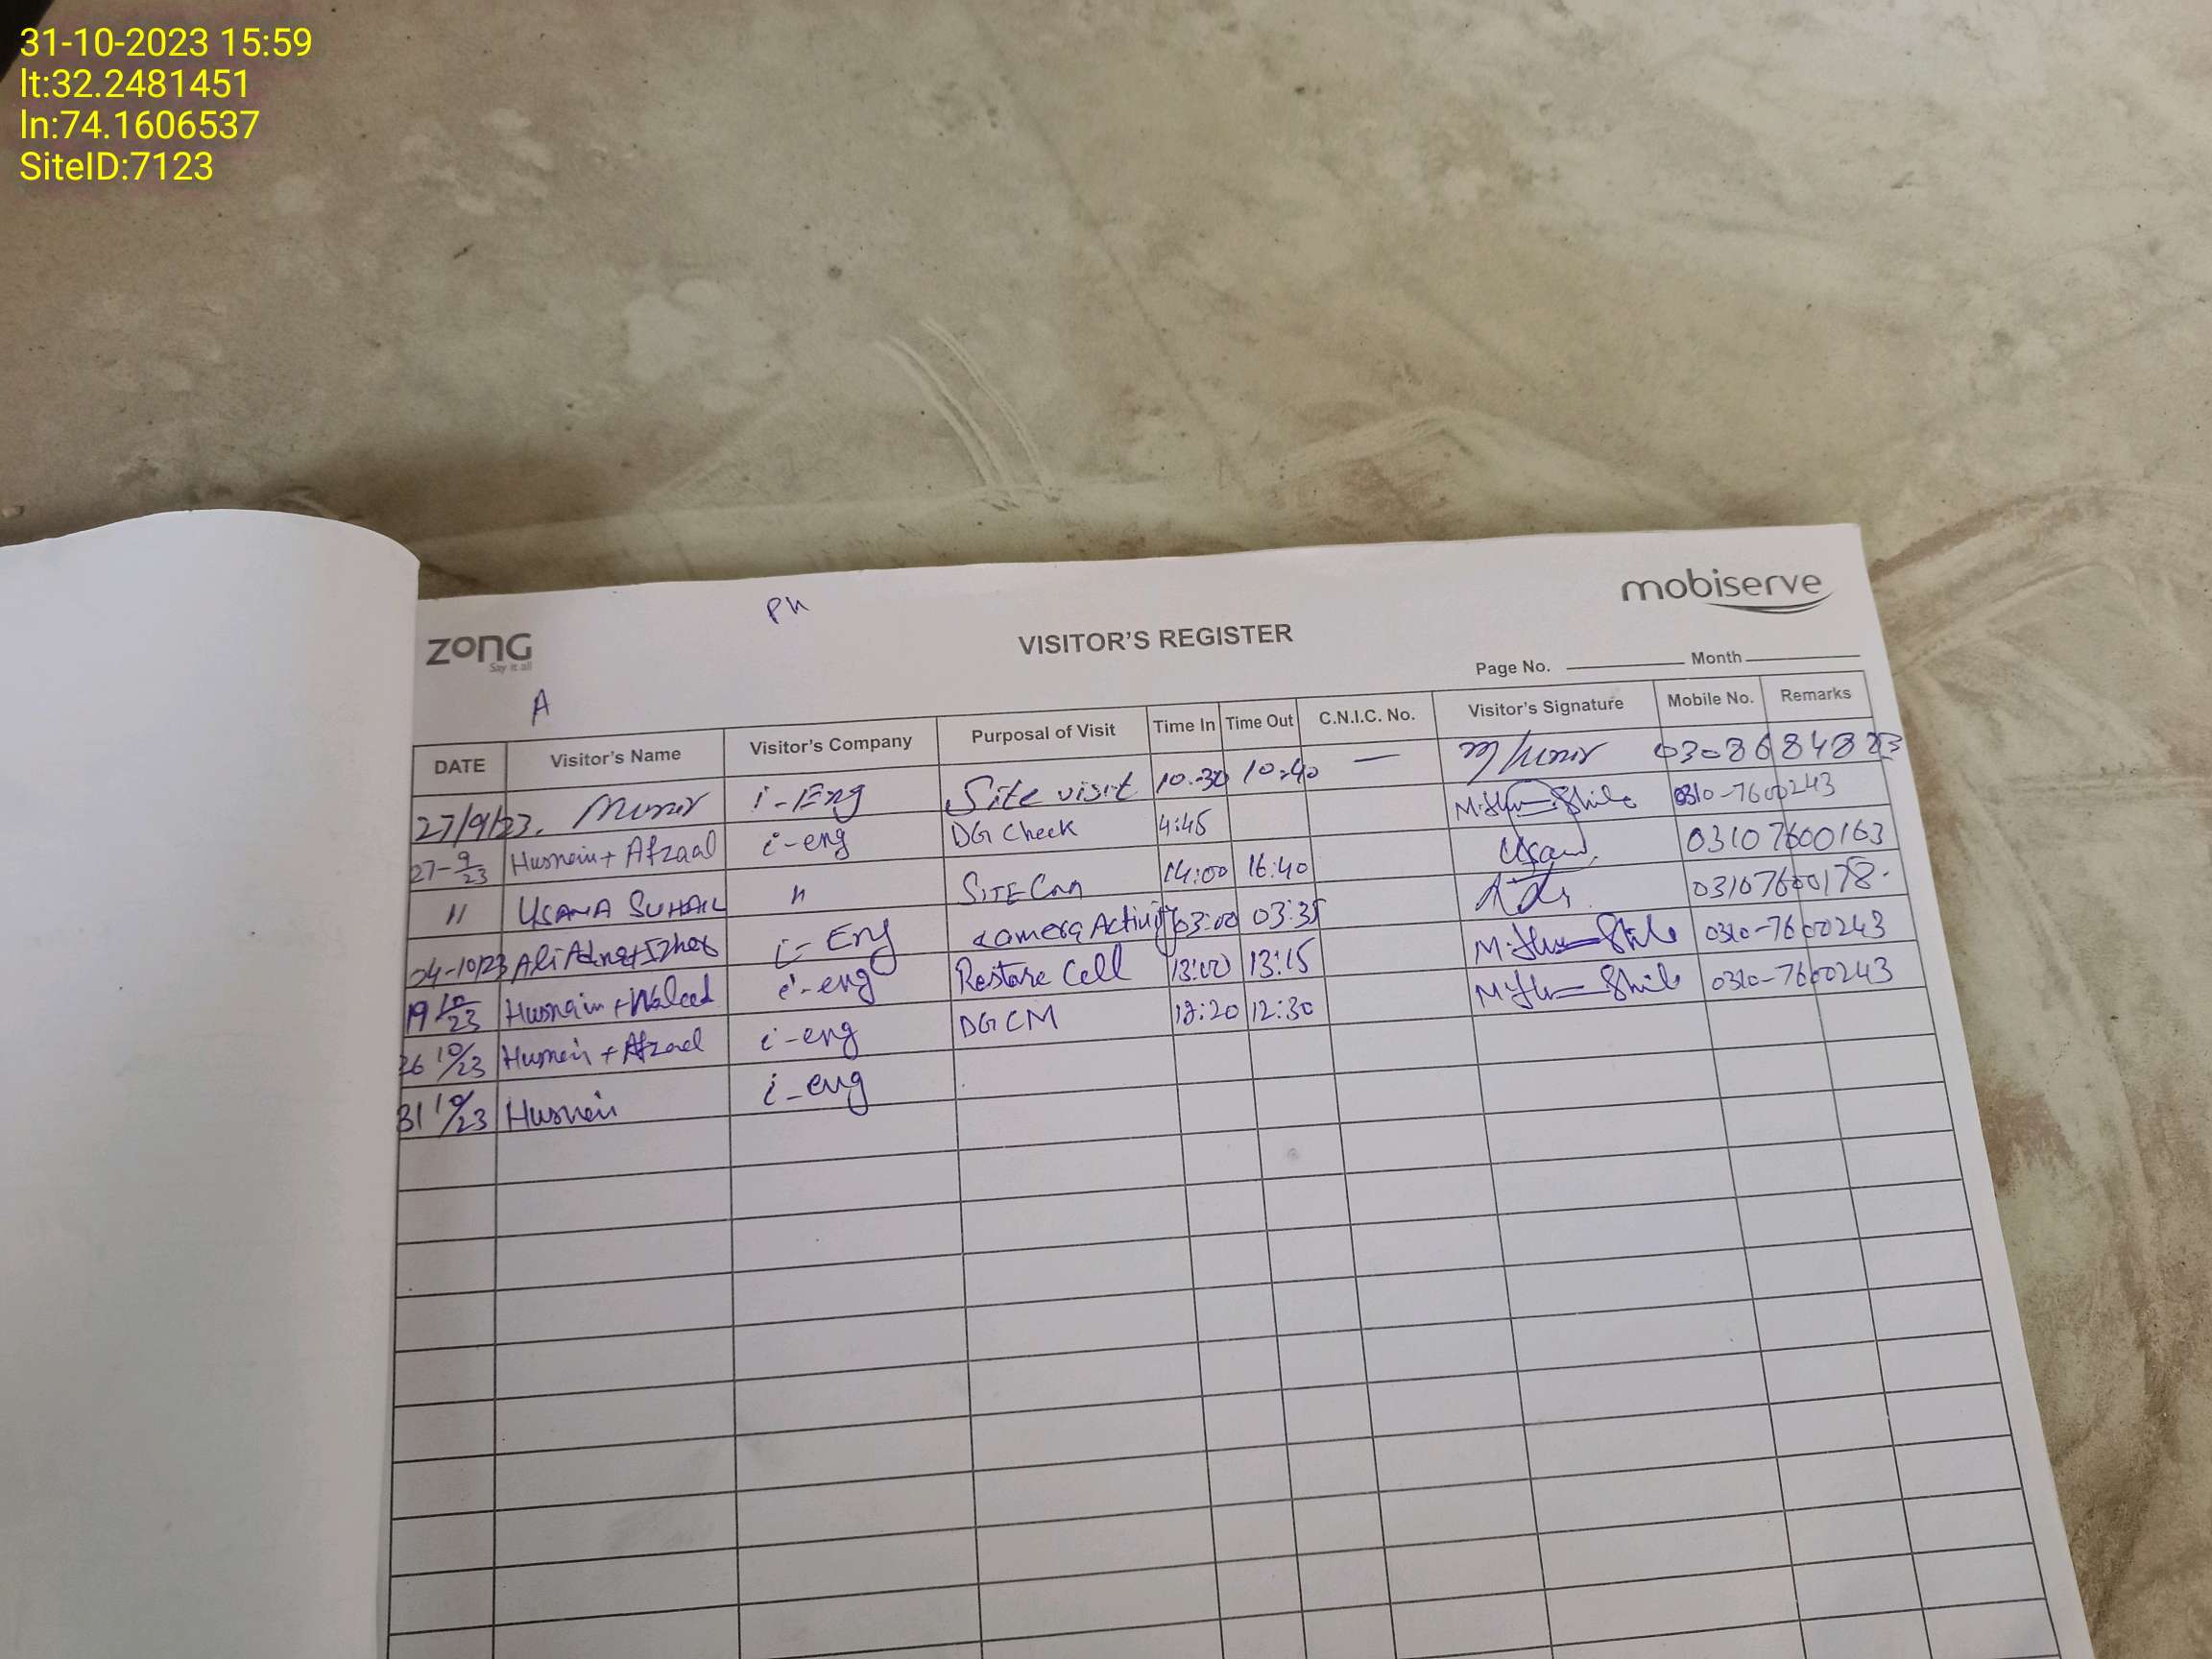 31-10-2023 15:59
lt:32.2481451
ln:74.1606537
SiteID:7123
mobiserve
PH
ZONG
Say it all
VISITOR'S REGISTER
Page No. Month
A
DATE Visitor's Name Visitor's Company Purposal of Visit Time In Time Out C.N.I.C. No. Visitor's Signature Mobile No. Remarks
27/9/23. Munir i-Eng Site visit 10:30 10:40 — M/Munir
27-9/23 Husnein + Afzaal i-eng DG Check 4:45 0310-7600243
" USAMA SUHAIL " SITE 14:00 16:40 Usam 03107600163
04-10/23 Ali i-Eng Camera Activity 03:00 03:35 03107600178.
19 10/23 Husnain + Waleed i-eng Restore Cell 13:00 13:15 0310-7600243
26 10/23 Husnein + Afzaal i-eng DG CM 12:20 12:30 0310-7600243
31 10/23 Husnein i-eng